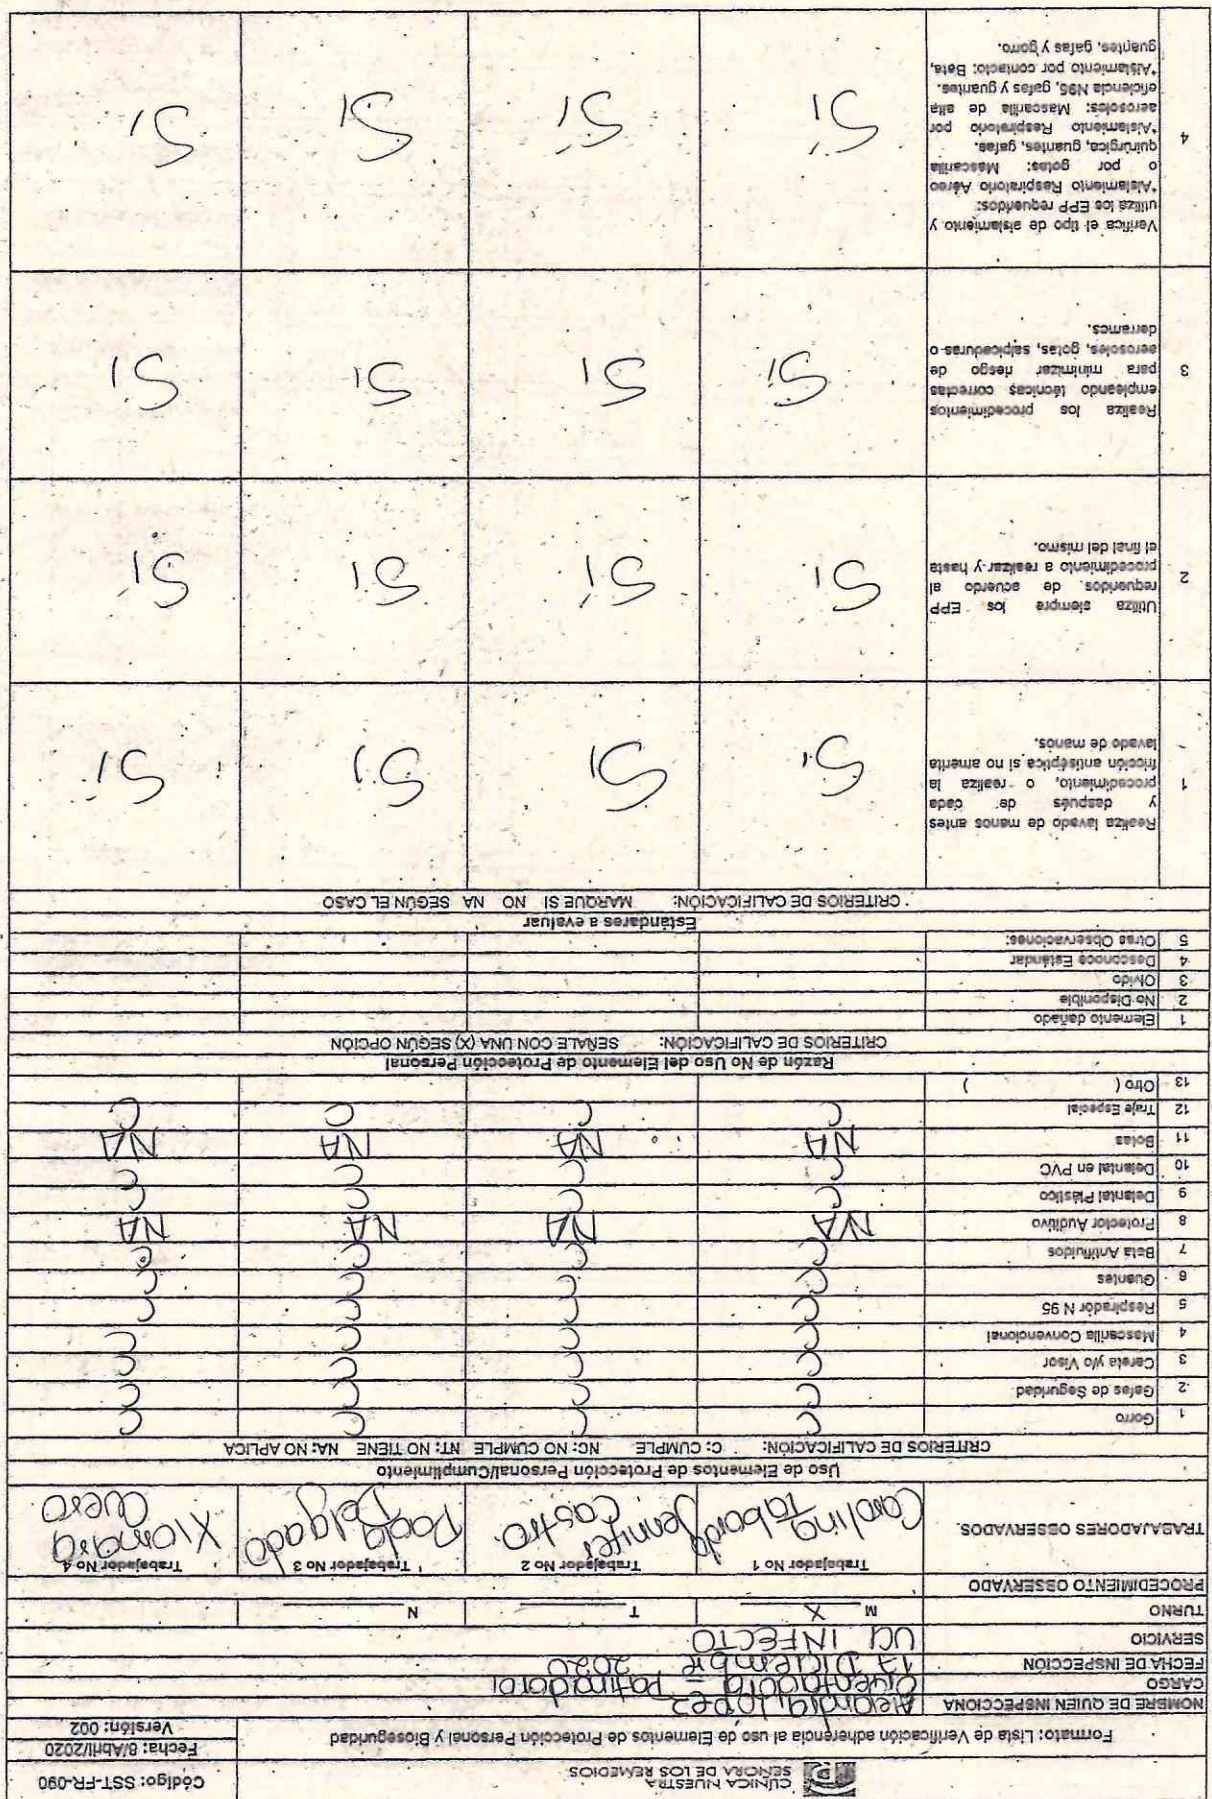 CLÍNICA NUESTRA
SEÑORA DE LOS REMEDIOS
Código: SST-FR-090
Formato: Lista de Verificación adherencia al uso de Elementos de Protección Personal y Bioseguridad
Fecha: 8/Abril/2020
Versión: 002
NOMBRE DE QUIEN INSPECCIONA Alejandra López
CARGO Orientadora = Patinadora
FECHA DE INSPECCIÓN 17 Diciembre 2020
SERVICIO UCI INFECTO
TURNO M X T N
PROCEDIMIENTO OBSERVADO
TRABAJADORES OBSERVADOS.
Trabajador No 1 Trabajador No 2 Trabajador No 3 Trabajador No 4
Carolina Taborda Jennifer Castro. Paola Delgado Xiomara Cuero
Uso de Elementos de Protección Personal/Cumplimiento
CRITERIOS DE CALIFICACIÓN: C: CUMPLE NC: NO CUMPLE NT: NO TIENE NA: NO APLICA
1 Gorro C C C C
2 Gafas de Seguridad C C C C
3 Careta y/o Visor C C C C
4 Mascarilla Convencional C C C C
5 Respirador N 95 C C C C
6 Guantes C C C C
7 Bata Antifluidos C C C C
8 Protector Auditivo NA NA NA NA
9 Delantal Plástico C C C C
10 Delantal en PVC C C C C
11 Botas NA NA NA NA
12 Traje Especial C C C C
13 Otro ( )
Razón de No Uso del Elemento de Protección Personal
CRITERIOS DE CALIFICACIÓN: SEÑALE CON UNA (X) SEGÚN OPCIÓN
1 Elemento dañado
2 No Disponible
3 Olvido
4 Desconoce Estándar
5 Otras Observaciones:
Estándares a evaluar
CRITERIOS DE CALIFICACIÓN: MARQUE SI NO NA SEGÚN EL CASO
1 Realiza lavado de manos antes
y después de cada
procedimiento, o realiza la
fricción antiséptica si no amerita
lavado de manos.
Si Si Si Si
2 Utiliza siempre los EPP
requeridos de acuerdo al
procedimiento a realizar y hasta
el final del mismo.
Si Si Si Si
3 Realiza los procedimientos
empleando técnicas correctas
para minimizar riesgo de
aerosoles, gotas, salpicaduras o
derrames.
Si Si Si Si
4 Verifica el tipo de aislamiento y
utiliza los EPP requeridos:
*Aislamiento Respiratorio Aéreo
o por gotas: Mascarilla
quirúrgica, guantes, gafas.
*Aislamiento Respiratorio por
aerosoles: Mascarilla de alta
eficiencia N95, gafas y guantes.
*Aislamiento por contacto: Bata,
guantes, gafas y gorro.
Si Si Si Si